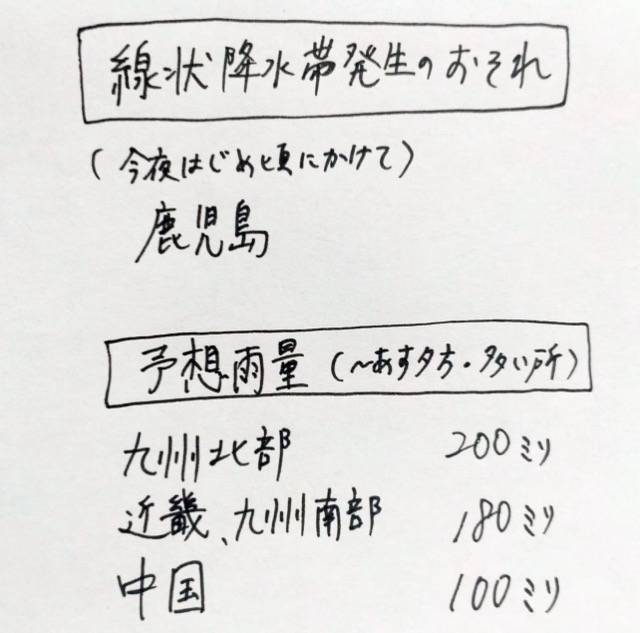 線状降水帯発生のおそれ
(今夜はじめ頃にかけて)
鹿児島
予想雨量(~あす夕方・多い所)
九州北部 200ミリ
近畿、九州南部 180ミリ
中国 100ミリ